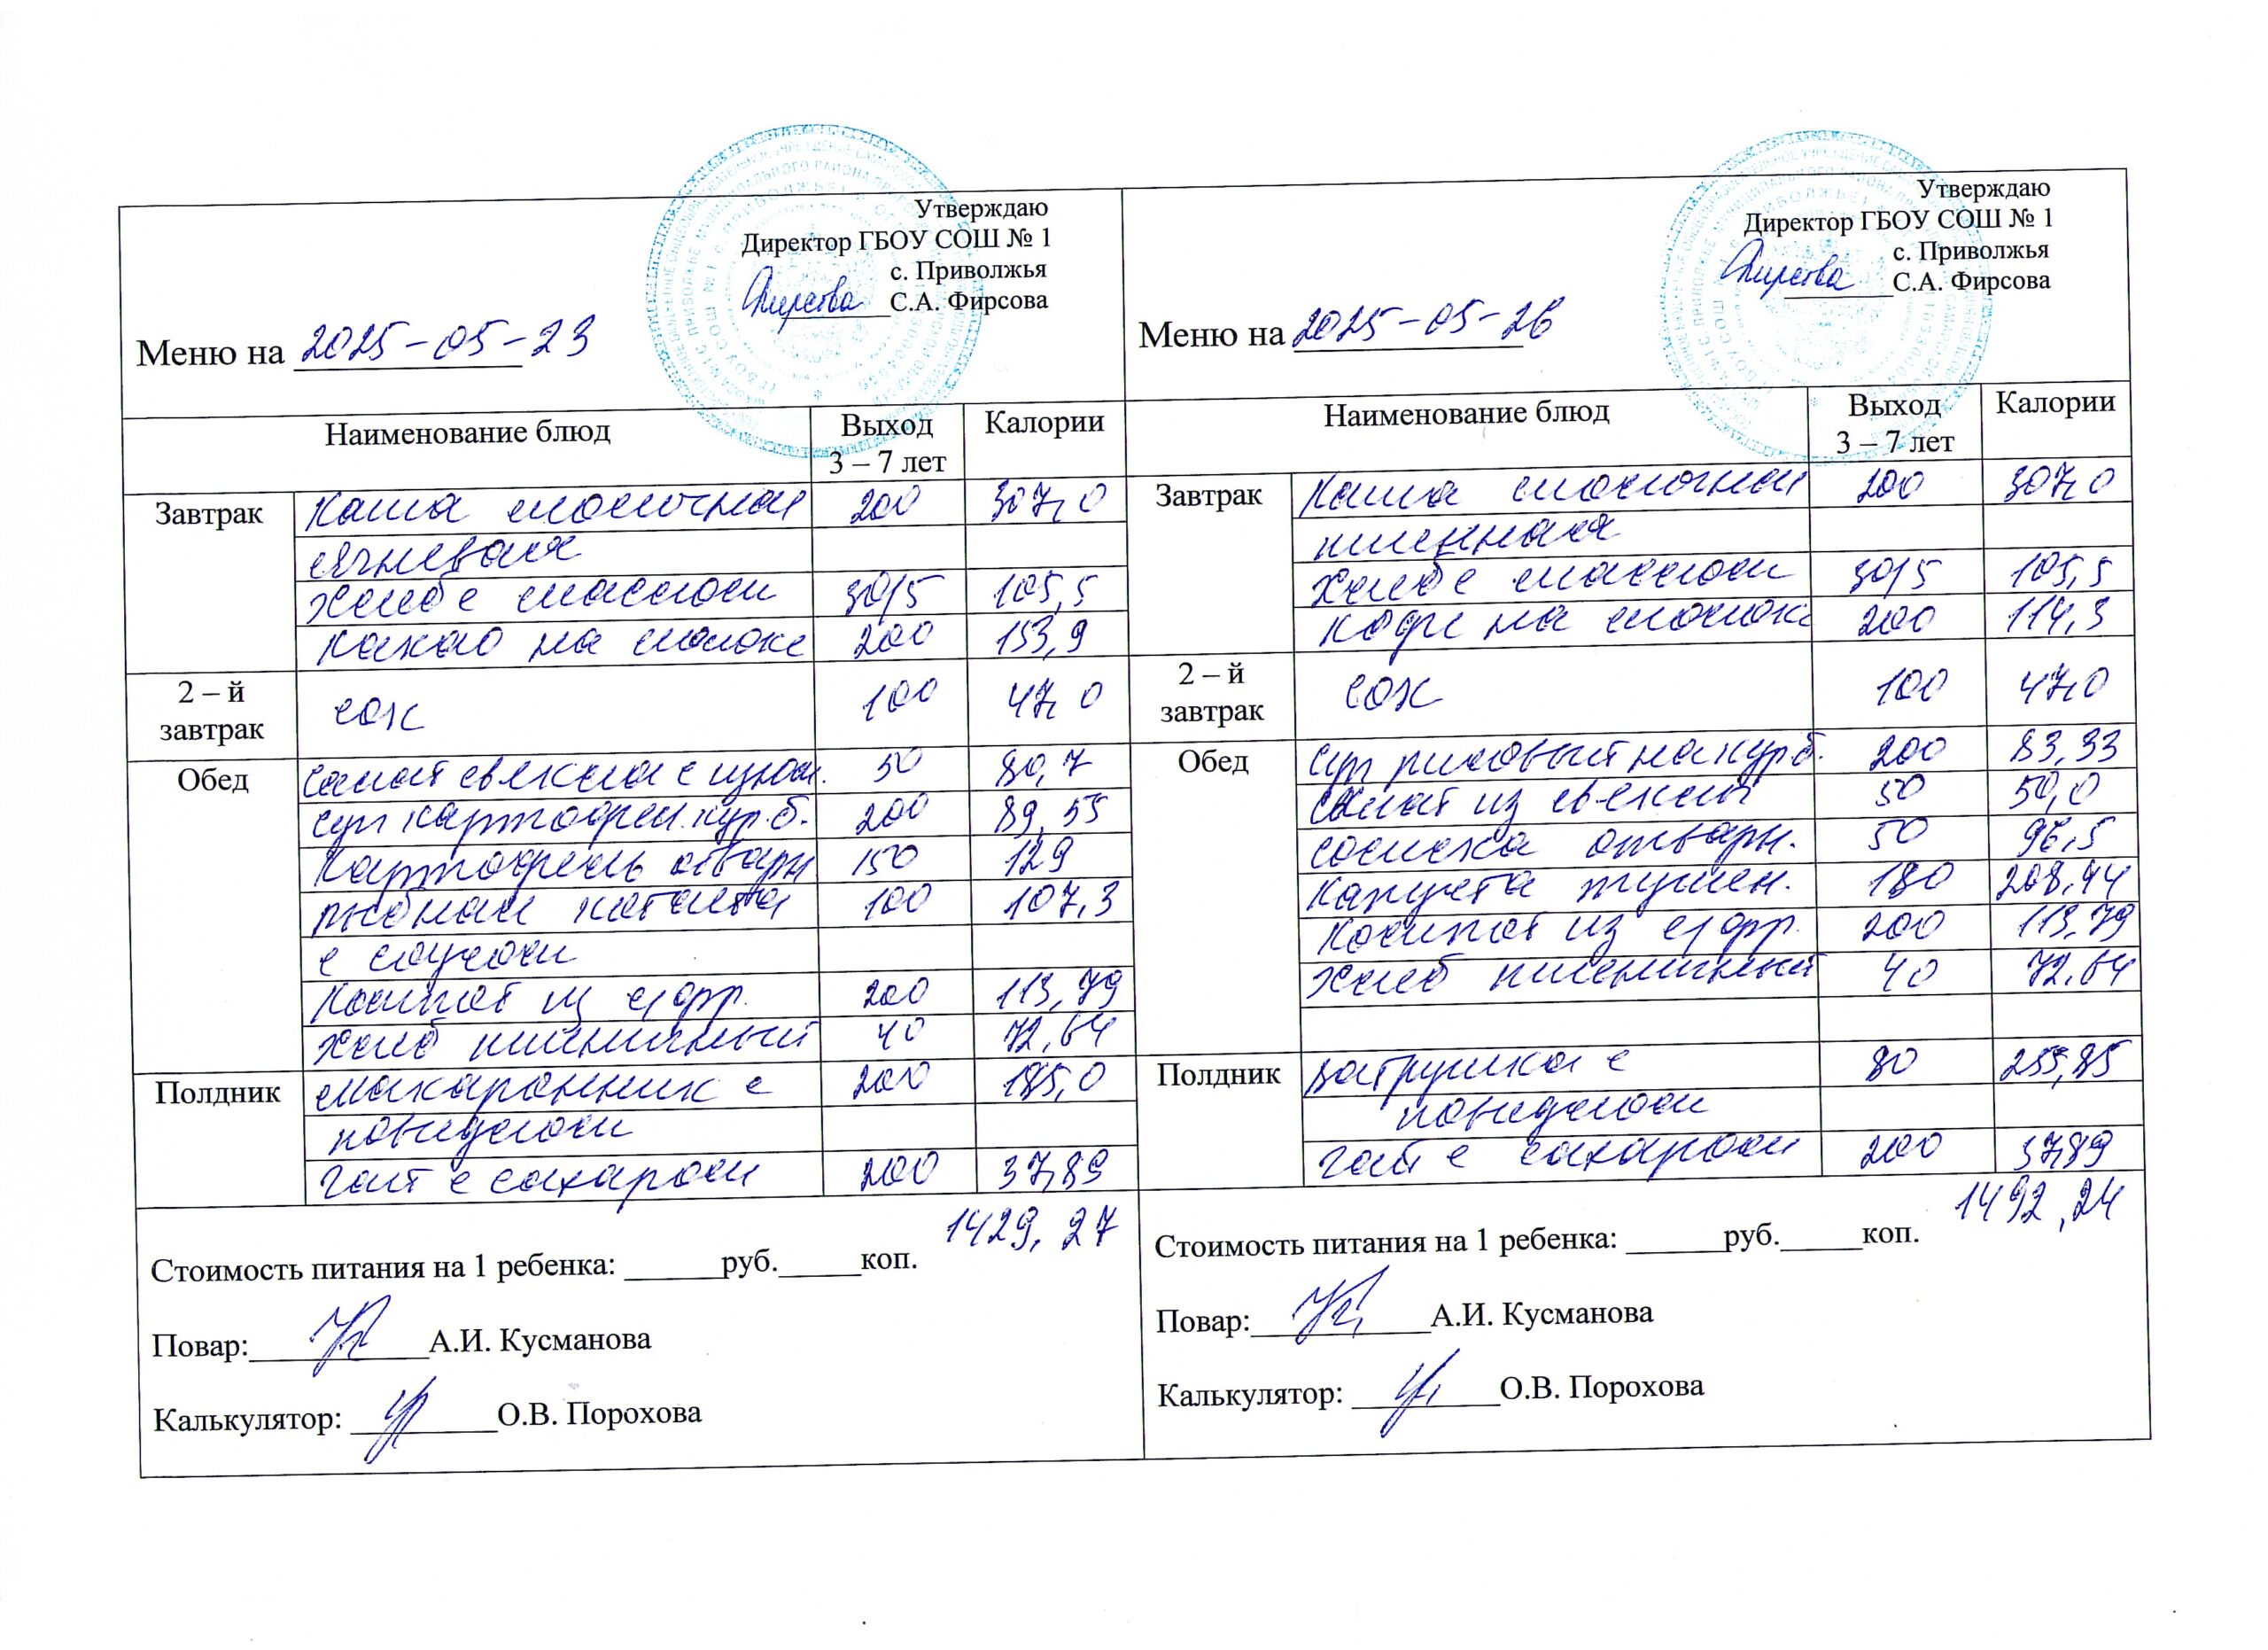 Утверждаю
Директор ГБОУ СОШ № 1
с. Приволжья
С.А. Фирсова
Меню на 2025-05-23
Наименование блюд Выход 3 – 7 лет Калории
Завтрак Каша молочная 200 307,0
ячневая
Хлеб с маслом 30/5 105,5
Какао на молоке 200 153,9
2 – й завтрак сок 100 47,0
Обед Салат свекла с изюм. 50 80,7
суп картофел. кур. б. 200 89,55
Картофель отварн 150 129
рыбная котлета 100 107,3
с соусом
Компот из с/фр. 200 113,79
Хлеб пшеничный 40 72,64
Полдник макаронник с 200 185,0
повидлом
Чай с сахаром 200 37,89
1429,27
Стоимость питания на 1 ребенка: руб. коп.
Повар: А.И. Кусманова
Калькулятор: О.В. Порохова
Утверждаю
Директор ГБОУ СОШ № 1
с. Приволжья
С.А. Фирсова
Меню на 2025-05-26
Наименование блюд Выход 3 – 7 лет Калории
Завтрак Каша молочная 200 307,0
пшенная
Хлеб с маслом 30/5 105,5
Кофе на молоке 200 114,3
2 – й завтрак сок 100 47,0
Обед суп рисовый на кур. б. 200 83,33
салат из свеклы 50 50,0
сосиска отварн. 50 96,5
Капуста тушен. 180 208,44
Компот из с/фр. 200 113,79
Хлеб пшеничный 40 72,64
Полдник Ватрушка с 80 255,85
повидлом
Чай с сахаром 200 37,89
1492,24
Стоимость питания на 1 ребенка: руб. коп.
Повар: А.И. Кусманова
Калькулятор: О.В. Порохова